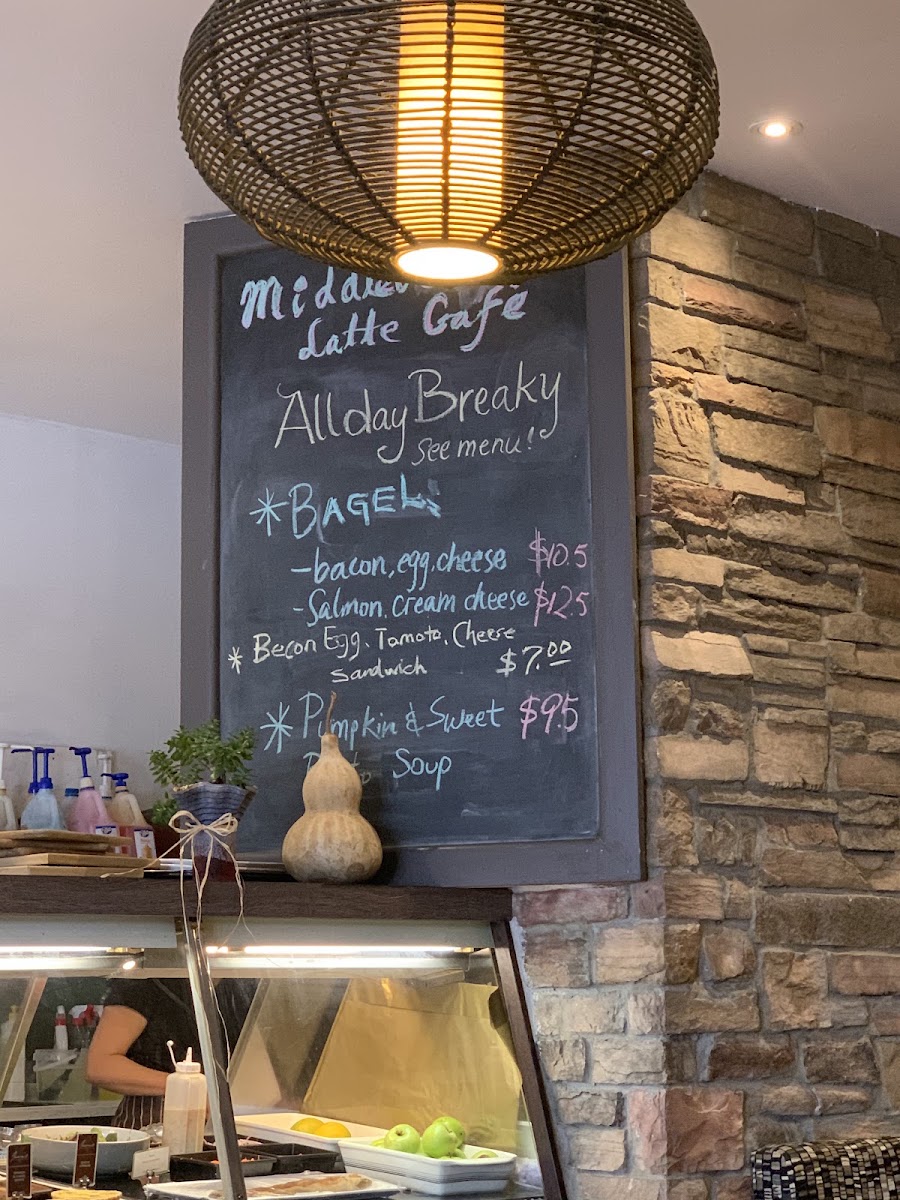 Latte Cafe
All day Breaky
See menu!
* BAGEL:
- bacon, egg, cheese $10.5
- Salmon, cream cheese $12.5
* Becon Egg, Tamato, Cheese
sandwich $7.00
* Pumpkin & Sweet $9.5
Soup